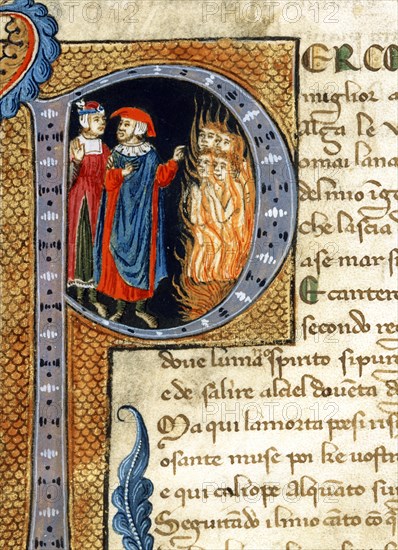 PERCO
miglior a
Alça le v
omai lana
delmio ĩge
Che lascia d
ase mar si
E cantero
secondo re
doue lumão spirito sipur
e de salire alciel douẽta d
Ma qui lamorta poesi ris
osante muse poi ke vostr
e qui caliope alquãto sur
Seguitãdo ilmio cãto cõ q